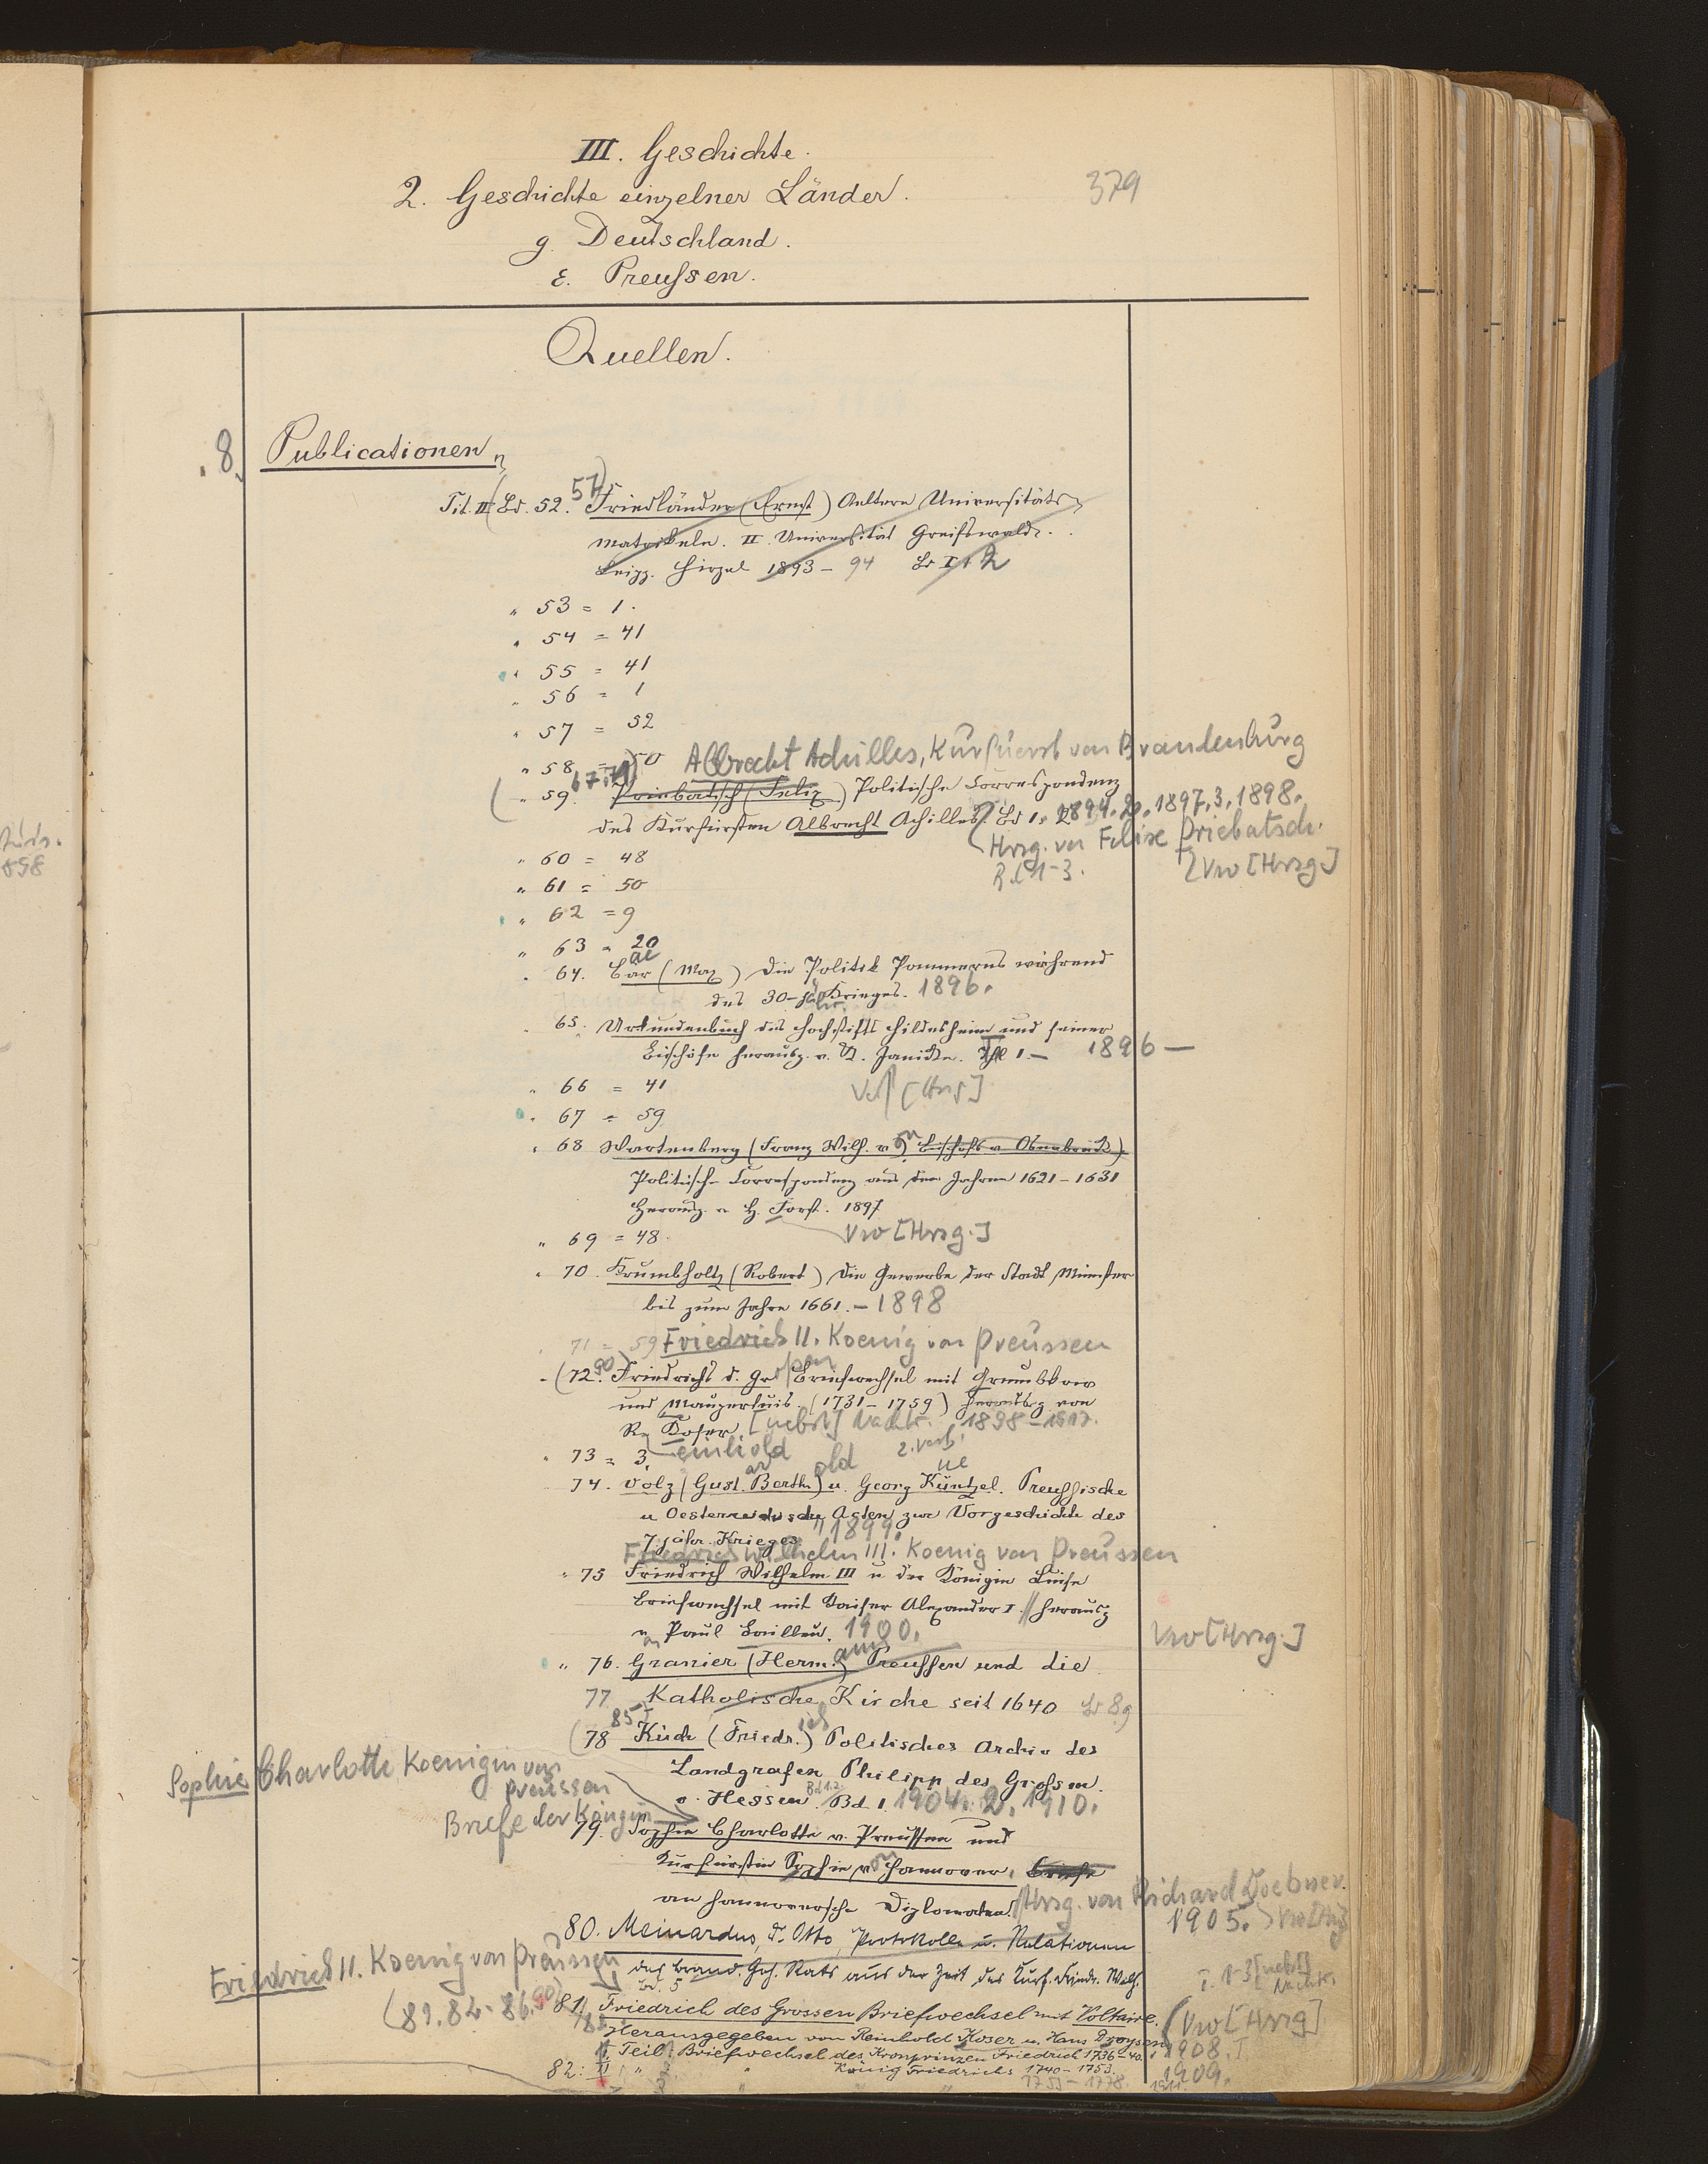 III. Geschichte.
2. Geschichte einzelner Länder.
379
g. Deutschland.
ε. Preußen.
Quellen.
8. Publicationen
Tit. II (Bd. 52. 57) Friedländer (Ernst) Aeltere Universitäts
Matrikeln. II. Universität Greifswald.
Leipz. Hirzel 1893 - 94 Bd I 1 2
" 53 = 1.
" 54 = 41
" 55 = 41
" 56 = 1
" 57 = 52
" 58 = 50 Albrecht Achilles, Kurfuerst von Brandenburg
( " 59. 67. 71) Priebatsch (Felix) Politische Correspondenz
des Kurfürsten Albrecht Achilles. Bd 1. 1894. 2. 1897. 3. 1898.
Hrsg. von Felix Priebatsch.
" 60 = 48
Bd 1-3. Vw [Hrsg]
" 61 = 50
" 62 = 9
" 63 = 20
" 64. Bär (Max) Die Politik Pommerns während
des 30-jähr. Krieges. 1896.
" 65. Urkundenbuch des Hochstifts Hildesheim und seiner
Bischöfe herausg. v. K. Janicke. Thl 1. - 1896 -
" 66 = 41
" 67 = 59
" 68 Wartenberg (Franz Wilh. v. Bischofs v. Osnabrück)
Politische Correspondenz aus den Jahren 1621 - 1631
Herausg. v. H. Forst. 1897
Vw [Hrsg.]
" 69 = 48.
" 70. Krumbholtz (Robert) Die Gewerbe der Stadt Münster
bis zum Jahre 1661. - 1898
" 71 = 59 Friedrich II. Koenig von Preussen
" (72. 90) Friedrichs d. Grossen Briefwechsel mit Grumbkow
und Maupertuis (1731 - 1759) herausg von
R. Koser [nebst] Nachtr. 1898 - 1917.
einhold
" 73 = 3.
74. Volz (Gust. Berth.) u. Georg Küntzel. Preussische
u Oesterreichische Acten zur Vorgeschichte des
7-jähr. Krieges 1899.
Friedrich Wilhelm III. Koenig von Preussen
" 75 Friedrich Wilhelm III u der Königin Luise
Briefwechsel mit Kaiser Alexander I. herausg
v. Paul Bailleu. 1900.
Vw [Hrsg.]
" 76. Granier (Herm.) Preussen und die
77 Katholische Kirche seit 1640 Bd 8. 9
(78 85) Küch (Friedr.) Politisches Archiv des
Landgrafen Philipp des Grossm.
v. Hessen. Bd 1. 1904. 2. 1910.
Sophie Charlotte Koenigin von
Preussen
Briefe der Königin
79. Sophie Charlotte v. Preussen und
Kurfürstin Sophie v. Hannover. Briefe
an hannoversche Diplomaten. Hrsg. von Richard Doebner.
1905.
80. Meinardus, D. Otto, Protokolle u. Relationen
des Brand. Geh. Rats aus der Zeit des Kurf. Friedr. Wilh.
Bd. 5
Friedrich II. Koenig von Preussen
T. 1-3 [nebst] Nachtr.
(81. 82. 86. 90) 81. Friedrich des Grossen Briefwechsel mit Voltaire.
Herausgegeben von Reinhold Koser u. Hans Droysen
Vw [Hrsg]
I Teil: Briefwechsel des Kronprinzen Friedrich 1736-40. 1908.
82: II " König Friedrichs 1740 - 1753. 1909.
1753 - 1778. 1911.